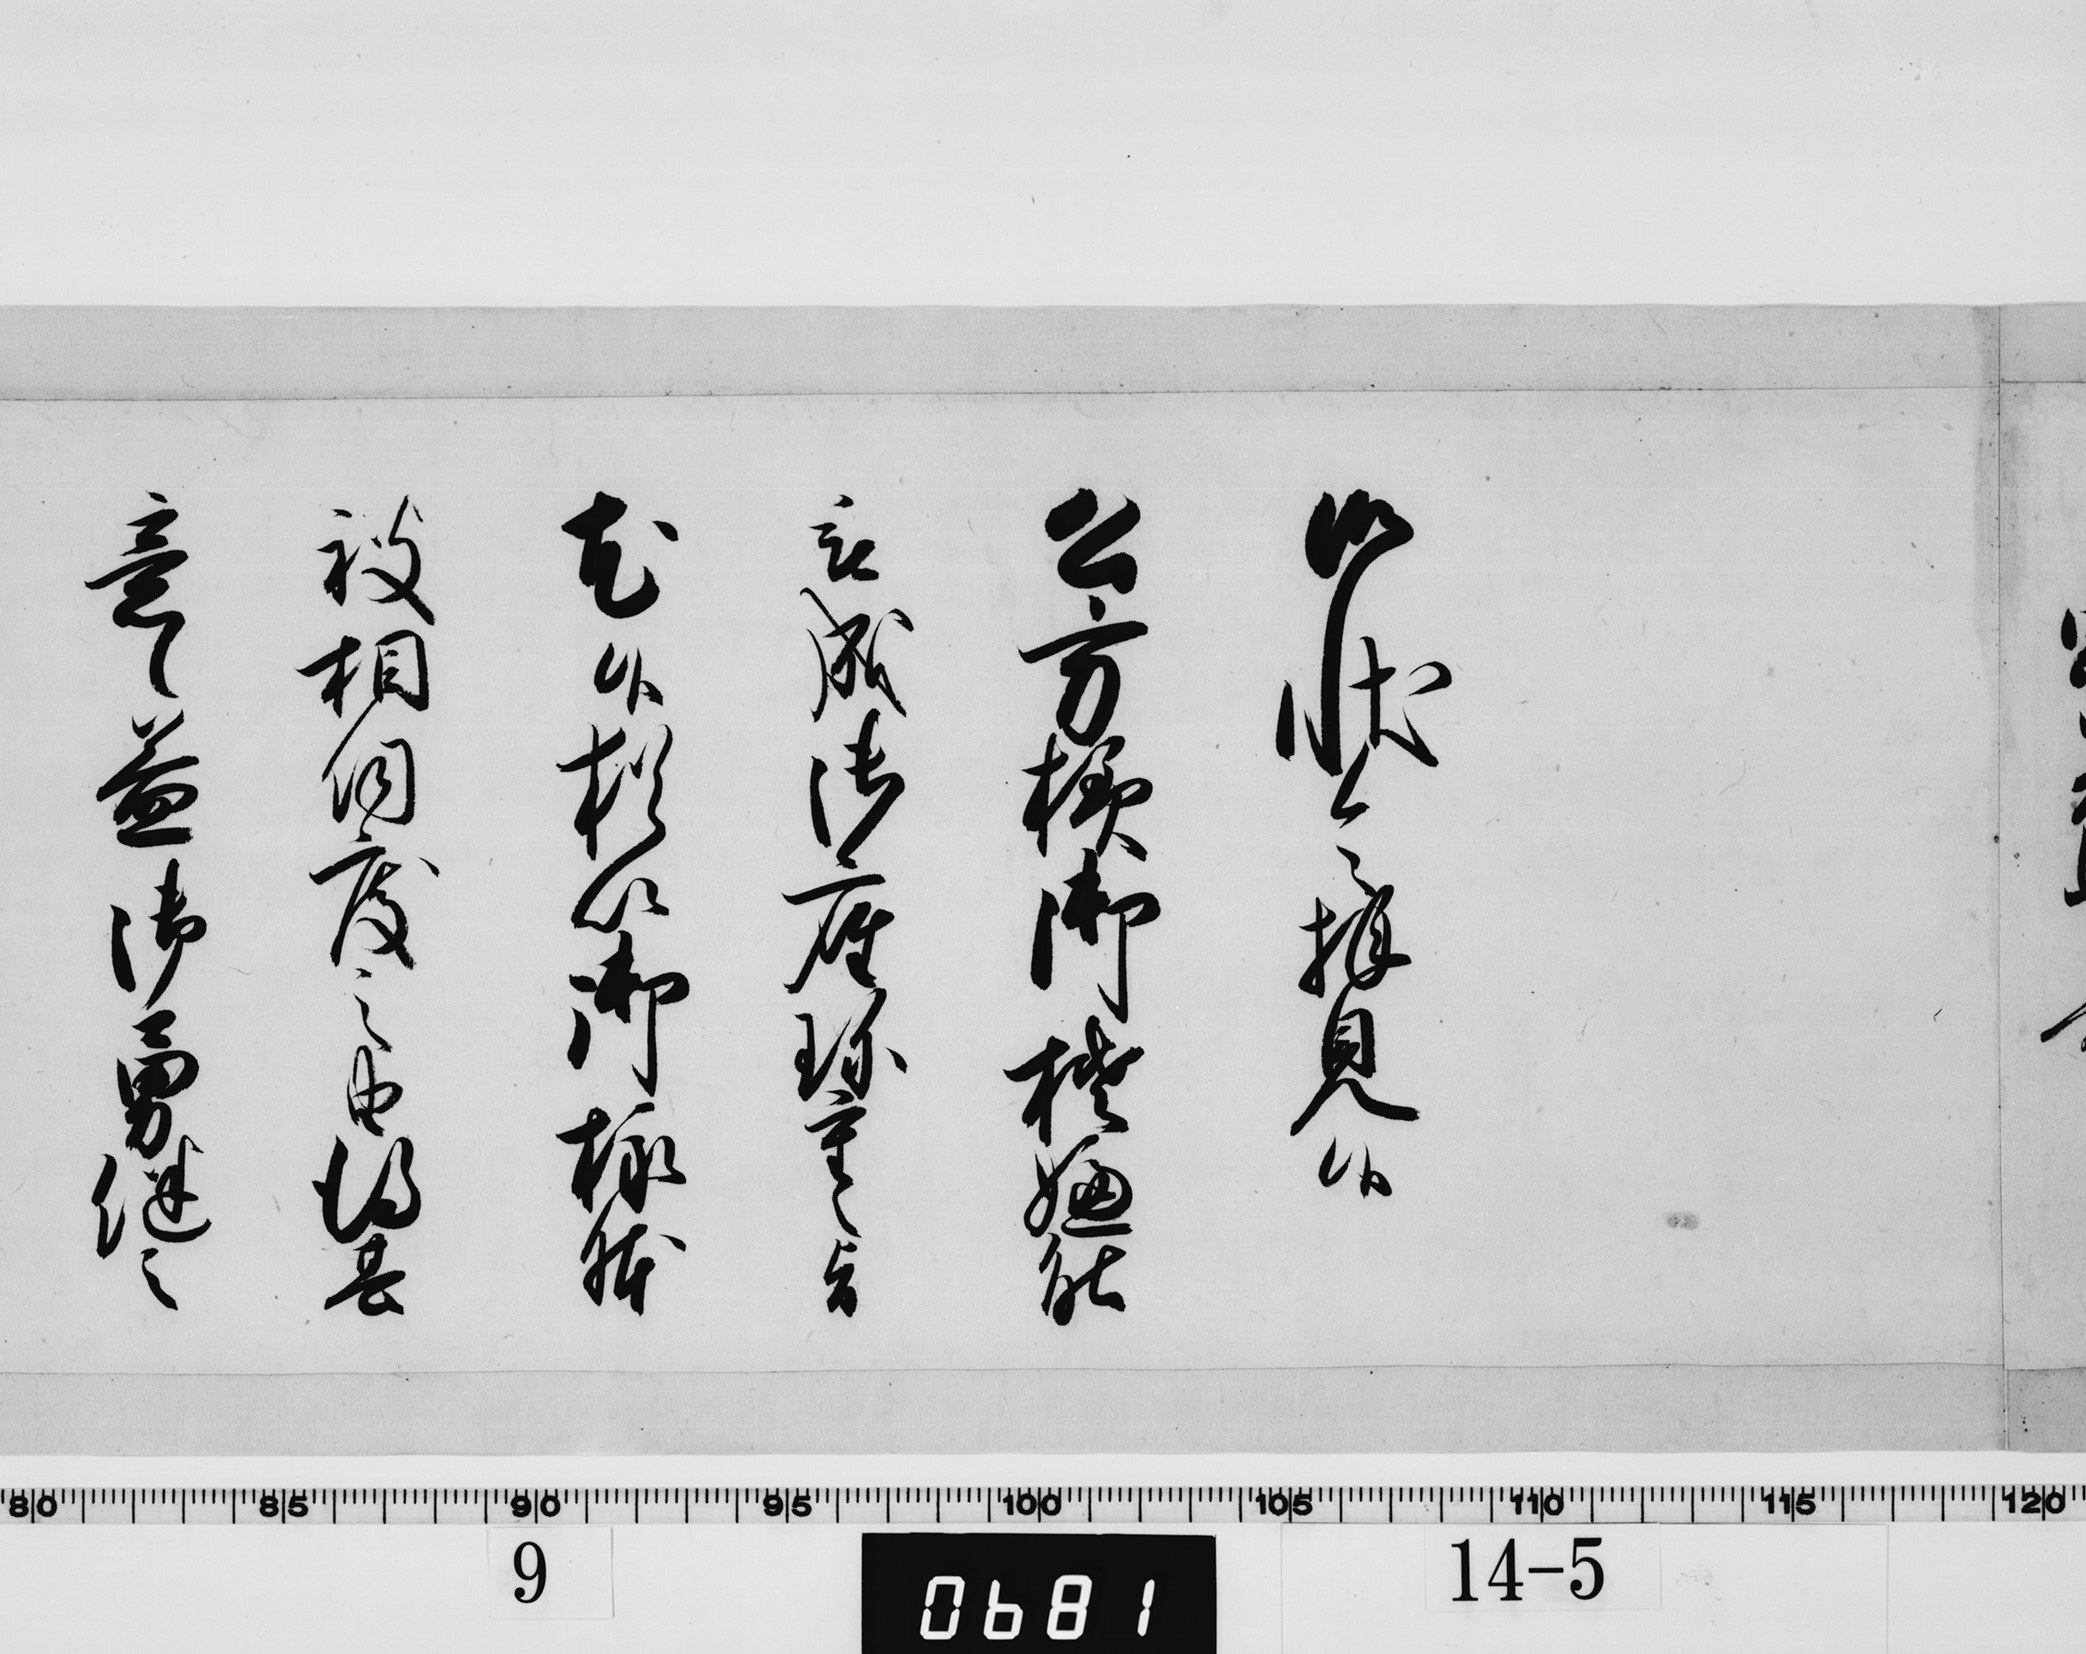 御状令拝見候
公方様御機嫌能
被成御座珍重之旨
尤候御様躰
被相伺度之由得其
意候益御勇健之
80 85 90 95 100 105 110 115 120
9 0681 14-5